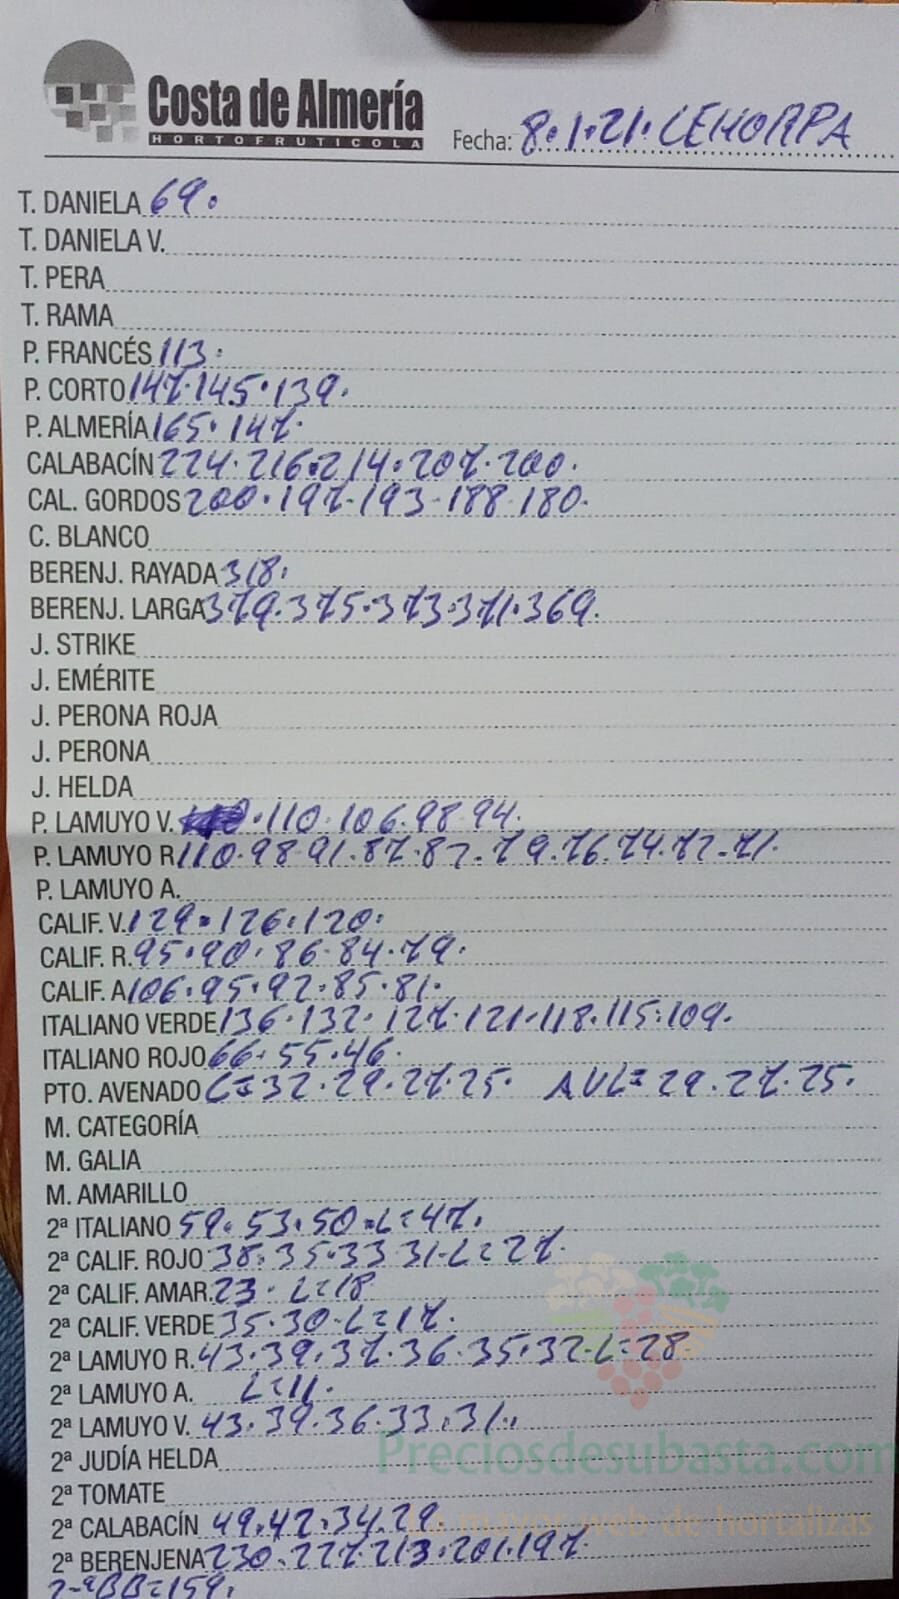 Costa de Almería
HORTOFRUTICOLA
Fecha: 8.1.21. CEHORPA
T. DANIELA 69.
T. DANIELA V.
T. PERA
T. RAMA
P. FRANCÉS 113.
P. CORTO 147.145.139.
P. ALMERÍA 165.147.
CALABACÍN 224.216.214.207.200.
CAL. GORDOS 200.197.193.188.180.
C. BLANCO
BERENJ. RAYADA 318.
BERENJ. LARGA 379.375.373.371.369.
J. STRIKE
J. EMÉRITE
J. PERONA ROJA
J. PERONA
J. HELDA
P. LAMUYO V. .110.106.98.94.
P. LAMUYO R 110.98.91.87.82.79.76.74.72.71.
P. LAMUYO A.
CALIF. V. 129.126.120.
CALIF. R. 95.90.86.84.79.
CALIF. A 106.95.92.85.81.
ITALIANO VERDE 136.132.127.121.118.115.109.
ITALIANO ROJO 66.55.46.
PTO. AVENADO C=32.29.27.25. AVL=29.27.25.
M. CATEGORÍA
M. GALIA
M. AMARILLO
2ª ITALIANO 59.53.50.L=47.
2ª CALIF. ROJO 38.35.33.31.L=27.
2ª CALIF. AMAR. 23. L=18
2ª CALIF. VERDE 35.30.L=17.
2ª LAMUYO R. 43.39.37.36.35.32.L=28
2ª LAMUYO A. L=11.
2ª LAMUYO V. 43.39.36.33.31.
2ª JUDÍA HELDA
Preciosdesubasta.com
2ª TOMATE
2ª CALABACÍN 49.42.34.29.
La mayor web de hortalizas
2ª BERENJENA 230.227.213.201.197.
2ªBB=159.